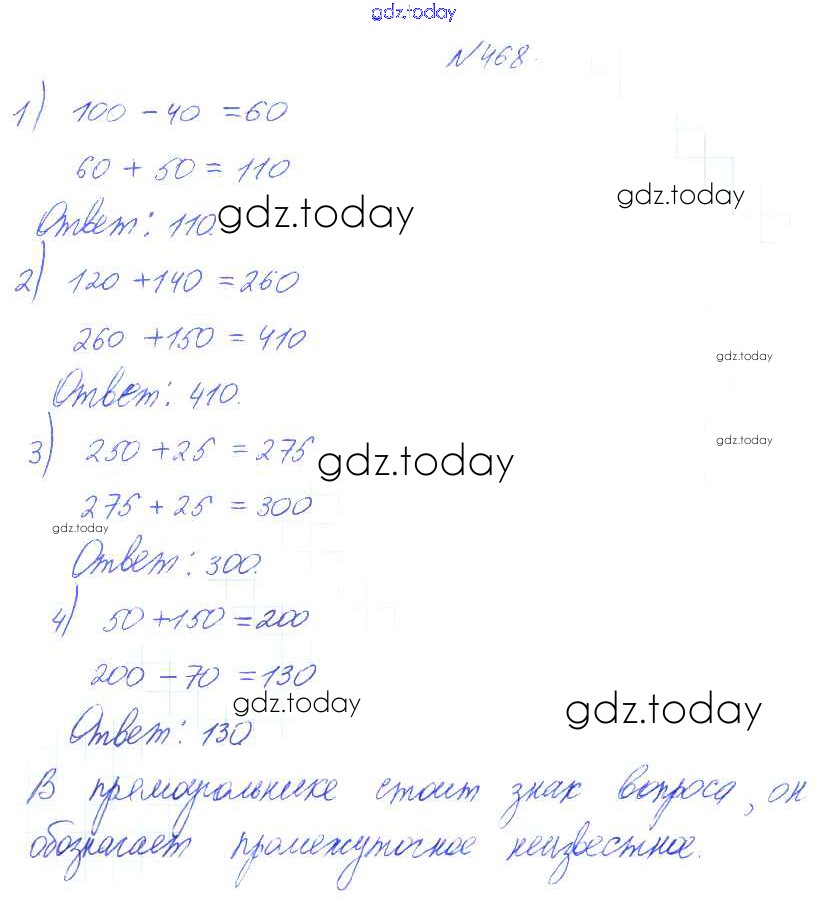 gdz.today
№468.
1) 100 - 40 = 60
60 + 50 = 110
gdz.today
Ответ: 110. gdz.today
2) 120 + 140 = 260
260 + 150 = 410
gdz.today
Ответ: 410.
gdz.today
3) 250 + 25 = 275 gdz.today
275 + 25 = 300
gdz.today
Ответ: 300.
4) 50 + 150 = 200
200 - 70 = 130
gdz.today gdz.today
Ответ: 130
В прямоугольнике стоит знак вопроса, он
обозначает промежуточное неизвестное.